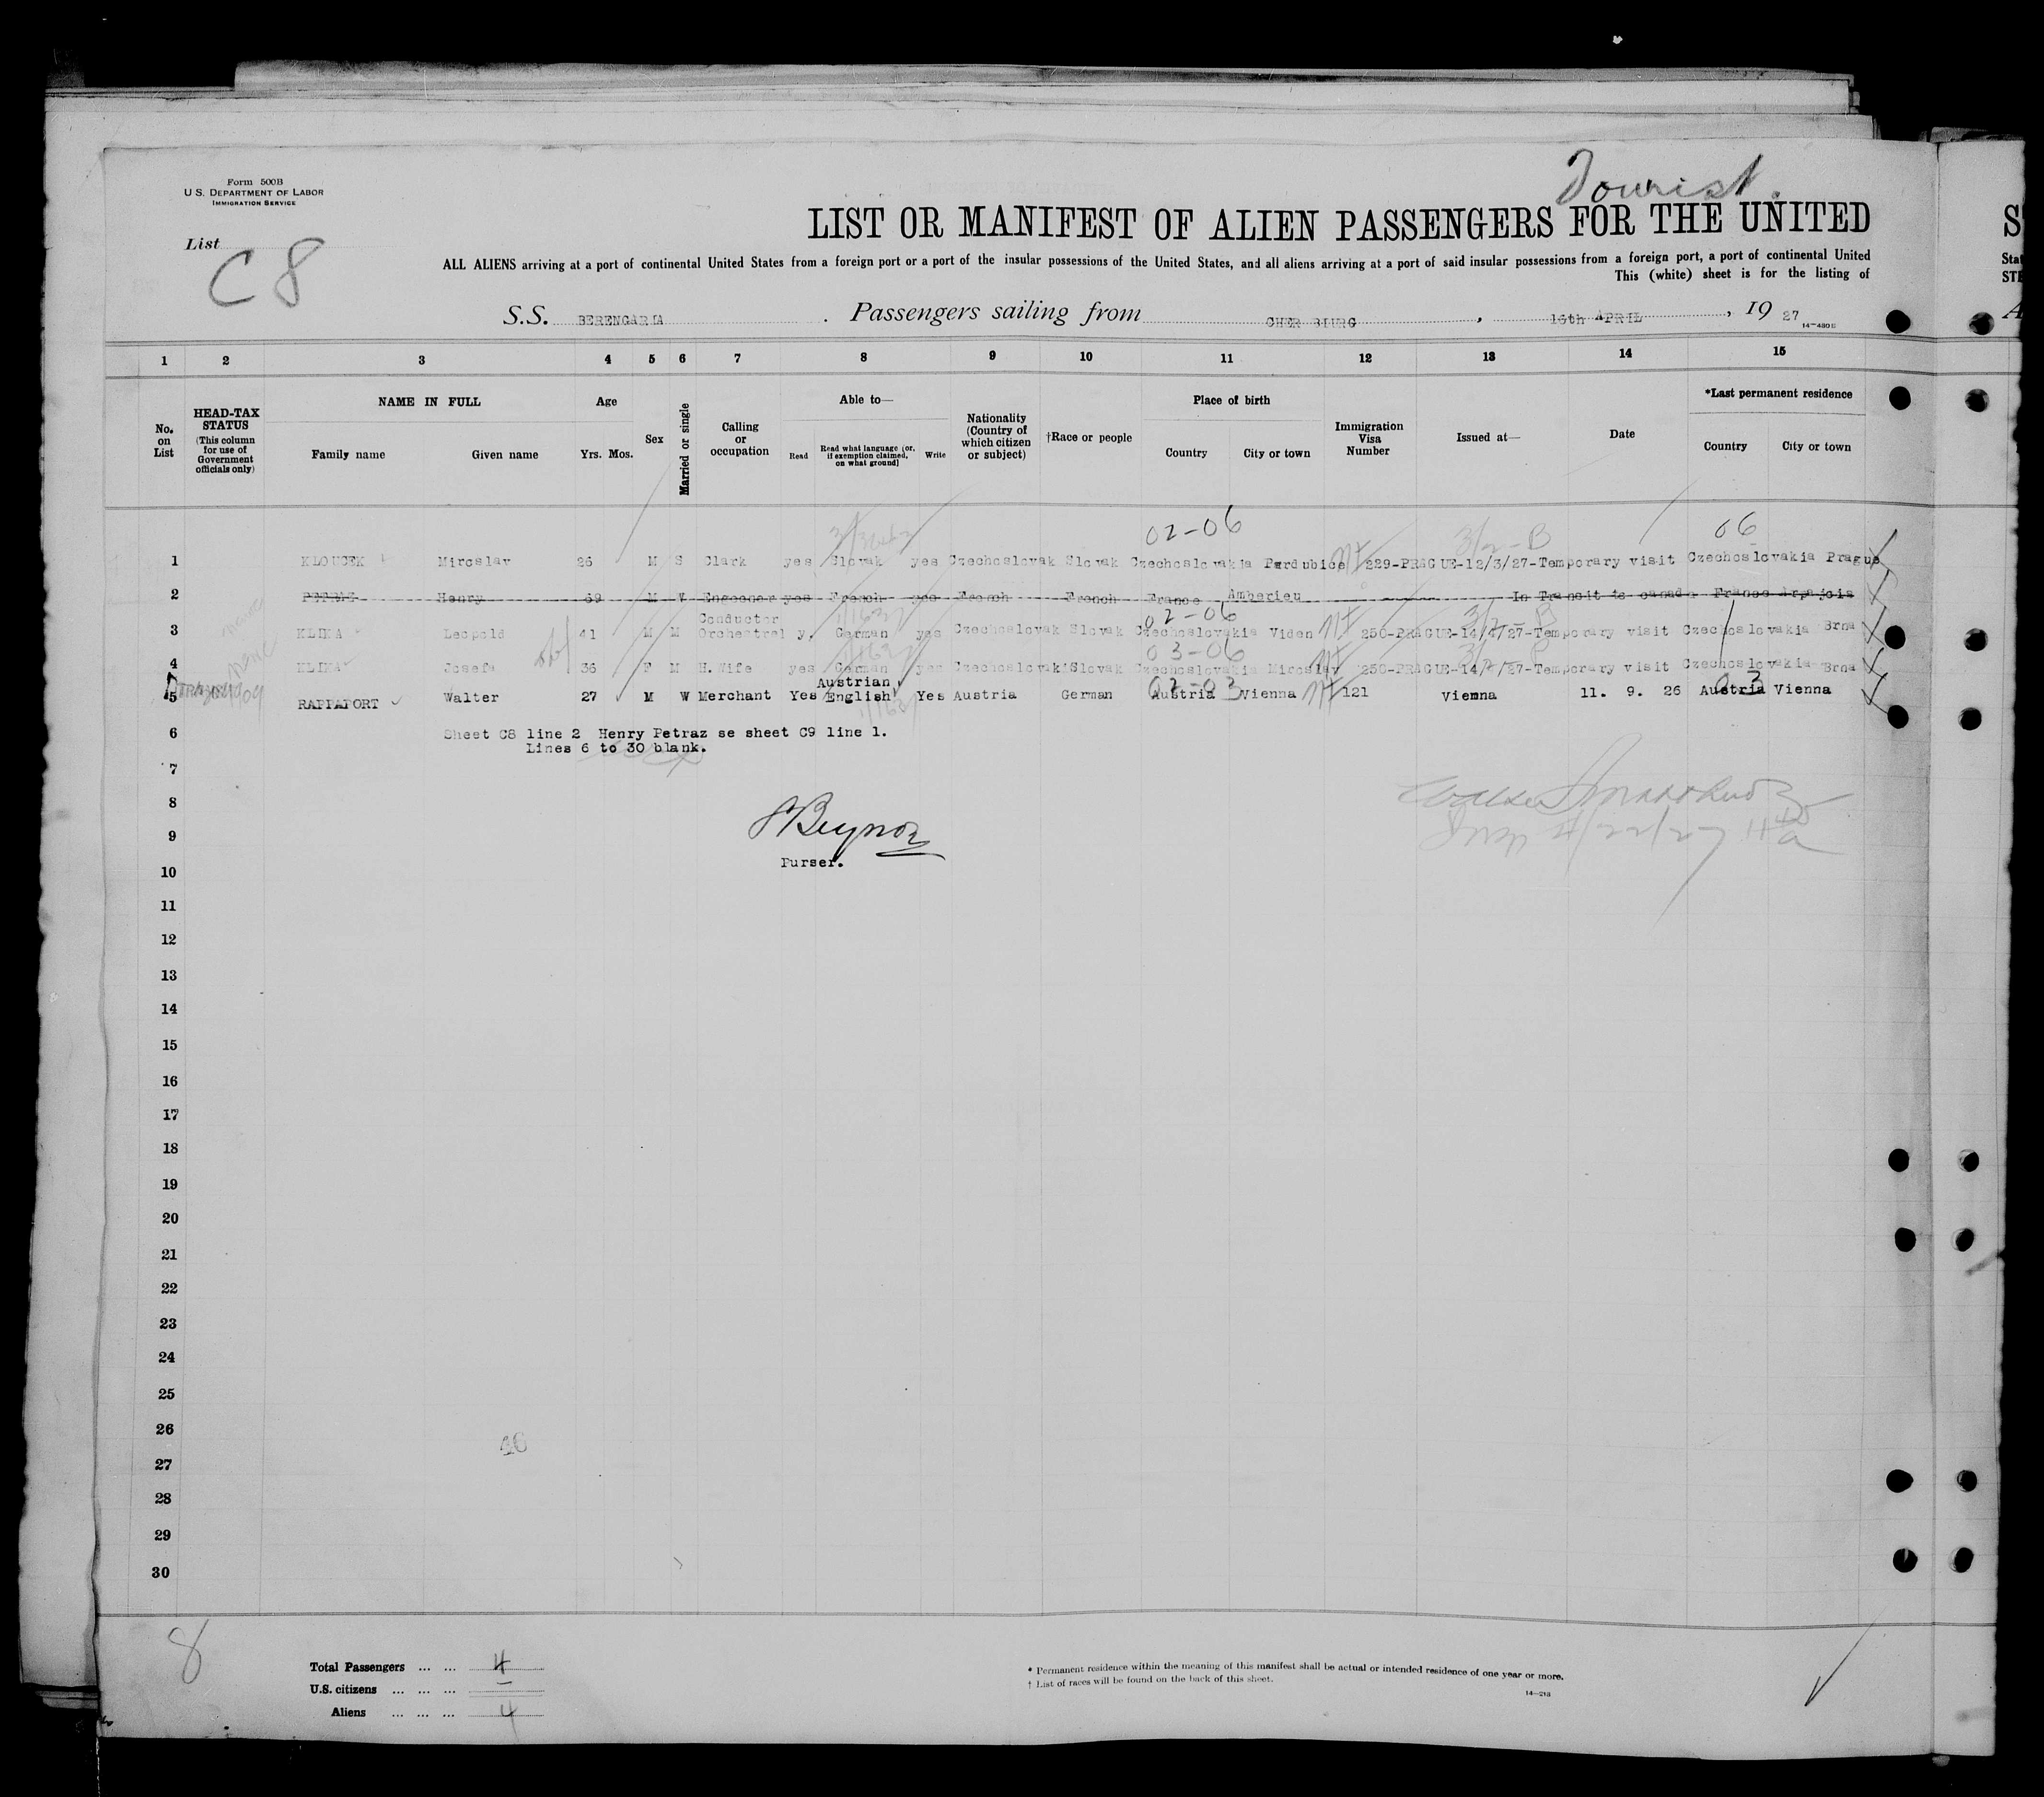 Tourist.
Form 500B
U S. DEPARTMENT OF LABOR
IMMIGRATION SERVICE
LIST OR MANIFEST OF ALIEN PASSENGERS FOR THE UNITED
List
C8
ALL ALIENS arriving at a port of continental United States from a foreign port or a port of the insular possessions of the United States, and all aliens arriving at a port of said insular possessions from a foreign port, a port of continental United
This (white) sheet is for the listing of
S.S. BERENGARIA . Passengers sailing from CHER BOURG , 16th APRIL , 19 27
14-430B
1 2 3 4 5 6 7 8 9 10 11 12 13 14 15
No. on List
HEAD-TAX STATUS (This column for use of Government officials only)
NAME IN FULL
Family name Given name
Age
Yrs. Mos.
Sex
Married or single
Calling or occupation
Able to—
Read Read what language [or, if exemption claimed, on what ground] Write
Nationality (Country of which citizen or subject)
†Race or people
Place of birth
Country City or town
Immigration Visa Number
Issued at—
Date
*Last permanent residence
Country City or town
02-06 3/2-B 06
1 KLOUCEK Miroslav 26 M S Clark yes Slovak yes Czechoslovak Slovak Czechoslovakia Pardubice 229-PRAGUE-12/3/27-Temporary visit Czechoslovakia Prague
2 Henry 69 M W Engeener yes French yes French French France Amberieu In Transit to canada France
02-06
3 KLIKA Leopold 41 M M Conductor Orchestrel y, German yes Czechoslovak Slovak Czechoslovakia Viden 250-PRAGUE-14/4/27-Temporary visit Czechoslovakia Brna
03-06
4 KLIKA Josefa 36 F M H.Wife yes German yes Czechoslovak Slovak Czechoslovakia Miroslav 250-PRAGUE-14/ /27-Temporary visit Czechoslovakia Brna
02-03 03
5 RAPPAPORT Walter 27 M W Merchant Yes Austrian English Yes Austria German Austria Vienna 121 Vienna 11. 9. 26 Austria Vienna
6 Sheet C8 line 2 Henry Petraz se sheet C9 line 1.
Lines 6 to 30 blank.
7
8
9
Purser.
10
11
12
13
14
15
16
17
18
19
20
21
22
23
24
25
26
46
27
28
29
30
8
Total Passengers ... ... 4
U.S. citizens ... ... ...
Aliens ... ... ... 4
* Permanent residence within the meaning of this manifest shall be actual or intended residence of one year or more.
† List of races will be found on the back of this sheet.
14-213